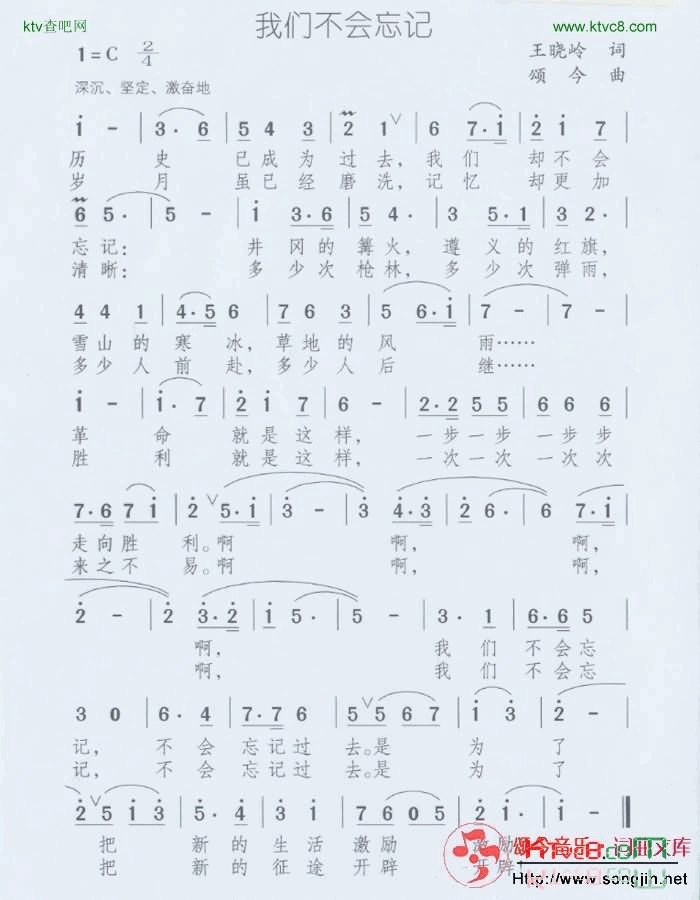 ktv查吧网
www.ktvc8.com
我们不会忘记
1=C 2/4
王晓岭 词
颂今 曲
深沉、坚定、激奋地
i - | 3·6 | 5 4 3 | 2 1 ∨ | 6 7·i | 2 i 7 |
历 史 已成为过去,我们 却不会
岁 月 虽已经磨洗,记忆 却更加
6 5· | 5 - | i 3·6 | 5 4· | 3 5·1 | 3 2· |
忘记: 井冈的篝火,遵义的红旗,
清晰: 多少次枪林,多少次弹雨,
4 4 1 | 4·5 6 | 7 6 3 | 5 6·i | 7 - | 7 - |
雪山的寒冰,草地的风 雨……
多少人前赴,多少人后 继……
i - | i·7 | 2 i 7 | 6 - | 2·2 5 5 | 6 6 6 |
革 命 就是这样, 一步一步步
胜 利 就是这样, 一次一次次
7·6 7 i | 2 ∨ 5·i | 3 - | 3 - | 4·3 | 2 6· | 6 7·i |
走向胜 利。啊 啊, 啊,
来之不 易。啊 啊, 啊,
2 - | 2 - | 3·2 | i 5· | 5 - | 3·1 | 6·6 5 |
啊, 我们 不会忘
啊, 我们 不会忘
3 0 | 6·4 | 7·7 6 | 5 ∨ 5 6 7 | i 3 | 2 - |
记, 不会 忘记过 去。是 为 了
记, 不会 忘记过 去。是 为 了
2 ∨ 5 i 3 | 5·4 | 3 i | 7 6 0 5 | 2 i | i - ‖
把 新的生活激励 激励
把 新的征途开辟 开辟
颂今音乐·词曲文库
KTVC8.COM
Http://www.songjin.net